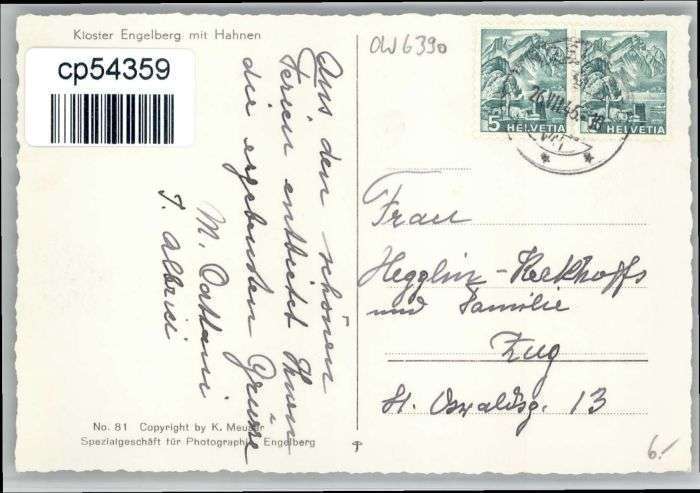 Kloster Engelberg mit Hahnen
cp54359
OW6390
5 HELVETIA
HELVETIA
26.VIII.46.-18
Aus den schönen
Ferien entbietet Ihnen
die ergebensten Grüsse
M. Cattani
J. Albrici
Frau
Hegglin-Keckhoffs
und Familie
Zug
St. Oswaldsg. 13
No. 81 Copyright by K. Meuser
Spezialgeschäft für Photographie, Engelberg
6.-